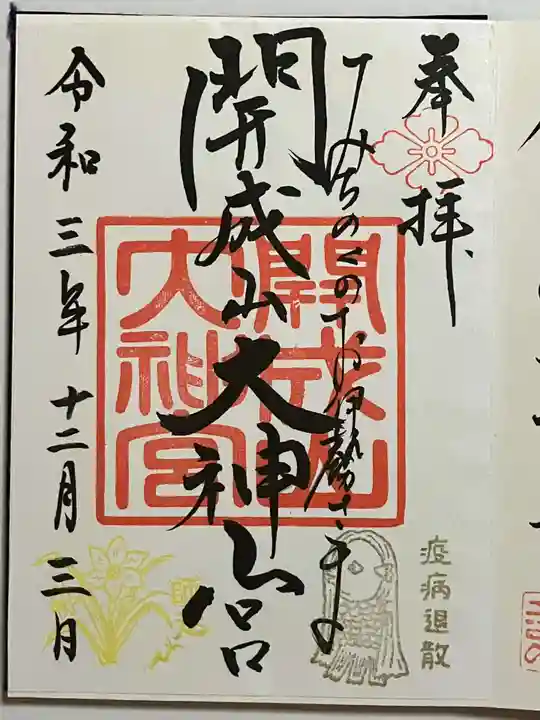 奉拝
みちのくのお伊勢さま
開成山大神宮
開成山
大神宮
令和三年十二月三日
疫病退散
師走